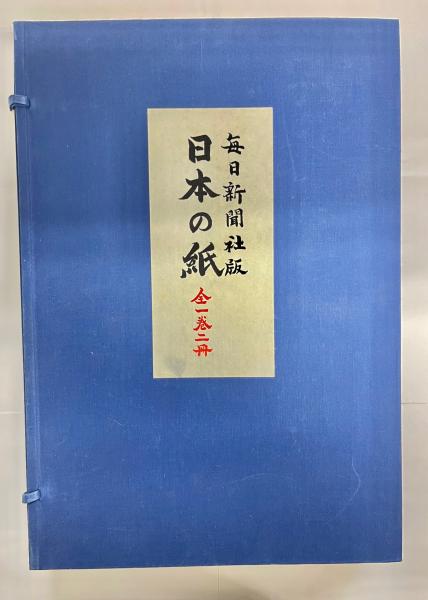 毎日新聞社版
日本の紙
全一巻二冊